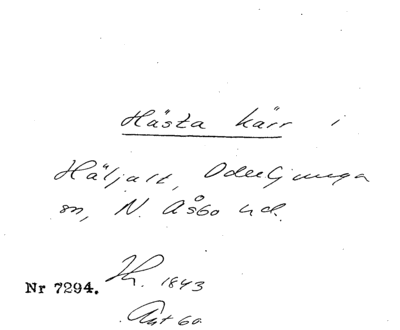 Hästa kärr i
Häljalt, Oderljunga
sn, N. Åsbo hd.
Nr 7294. 1843
Akt 60